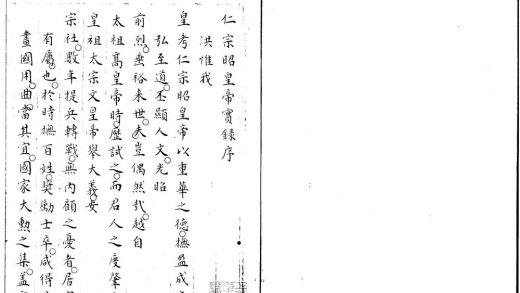 仁宗昭皇帝實錄序
洪惟我
皇考仁宗昭皇帝以重華之德撫盈成之
弘至道丕顯人文光昭
前烈垂裕來世夫豈偶然哉越自
太祖高皇帝時歷試之而君人之度肇
皇祖太宗文皇帝舉大義安
宗社數年提兵轉戰無內顧之憂者居
有屬也於時撫百姓獎勵士卒咸得
畫國用曲當其宜國家大勲之集蓋